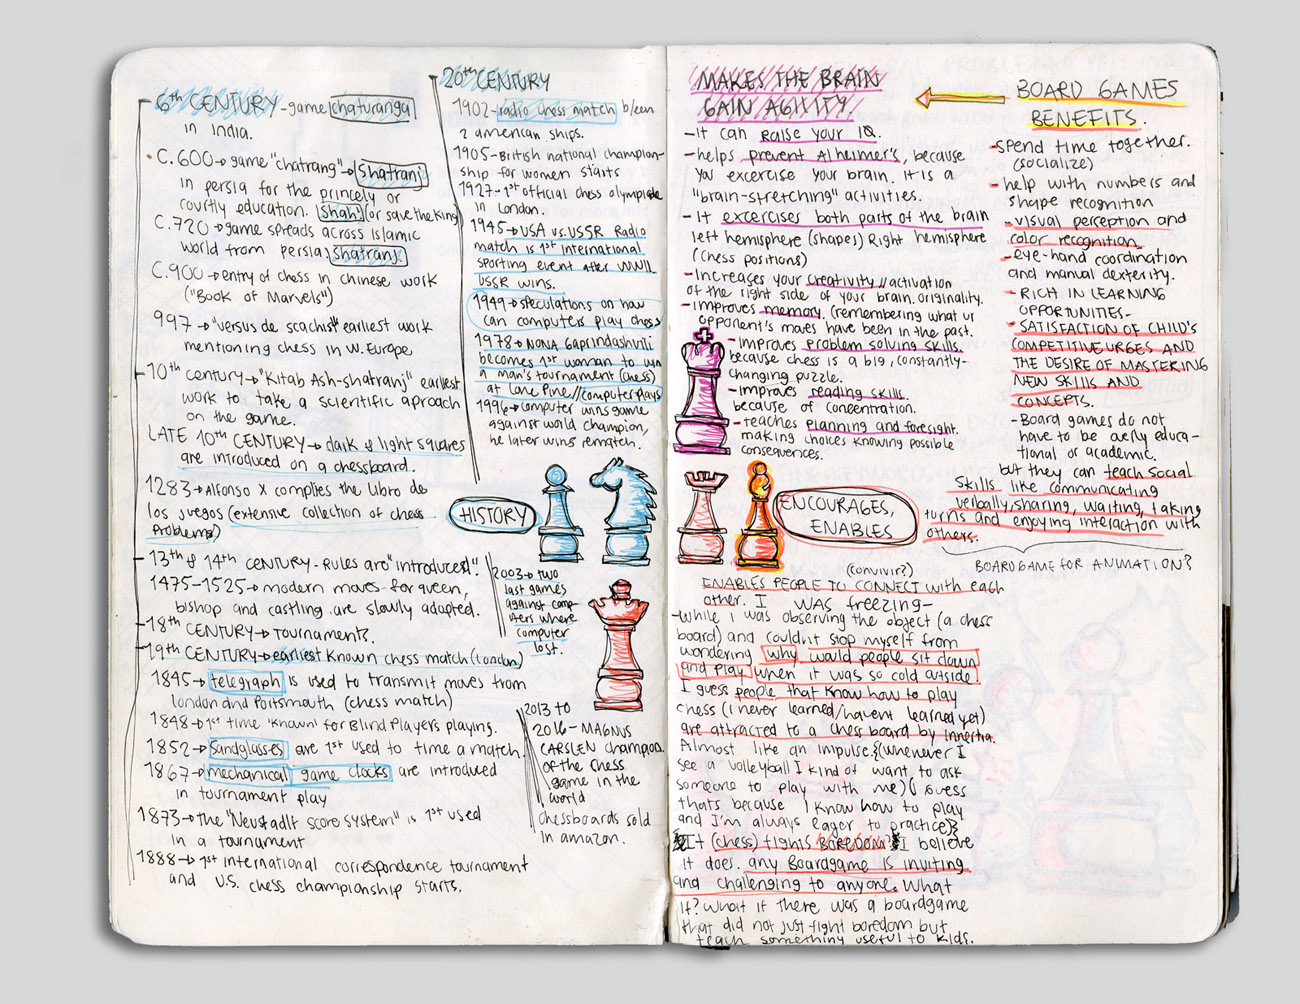 6th CENTURY - game chaturanga
in India.
C.600→game "chatrang"→Shatranj
in persia for the princely or
courtly education. Shah! (or save the king)
C.720→game spreads across Islamic
world from persia; shatranj.
C.900→entry of chess in chinese work
("Book of Marvels")
997→"versus de scachis" earliest work
mentioning chess in W. Europe
10th century→"Kitab Ash-shatranj" earliest
work to take a scientific aproach
on the game.
LATE 10th CENTURY→dark & light squares
are introduced on a chessboard.
1283→Alfonso X complies the Libro de
los juegos (extensive collection of chess
Problems)
13th & 14th CENTURY-rules are "introduced".
1475-1525→modern moves-for queen,
bishop and castling are slowly adapted.
18th CENTURY→Tournaments.
19th CENTURY→earliest known chess match (London)
1845→telegraph is used to transmit moves from
london and Portsmouth (chess match)
1848→1st time 'known' for Blind Players playing.
1852→sandglasses are 1st used to time a match.
1867→mechanical game clocks are introduced
in tournament play
1873→the "Neustadlt score system" is 1st used
in a tournament
1888→1st international correspondence tournament
and U.S. chess championship starts.
20th CENTURY
1902-radio chess match b/een
2 american ships.
1905-British national champion-
ship for women starts
1927-1st official chess olympiade
in London.
1945→USA vs. USSR Radio
match is 1st international
sporting event after WWII
USSR wins.
1949→speculations on how
can computers play chess
1978→NONA Gaprindashvili
becomes 1st woman to win
a man's tournament (chess)
at Lone Pine//computer plays
1996→computer wins game
against world champion,
he later wins rematch.
HISTORY
2003→two
last games
against comp-
uters where
computer
lost.
2013 to
2016-MAGNUS
CARSLEN champion
of the chess
game in the
world
chessboards sold
in amazon.
MAKES THE BRAIN
GAIN AGILITY.
-It can raise your IQ.
-helps prevent Alheimer's, because
you excercise your brain. It is a
"brain-stretching" activities.
-It excercises both parts of the brain
left hemisphere (shapes) Right hemisphere
(chess positions)
-Increases your creativity//activation
of the right side of your brain. originality.
-improves memory. (remembering what ur
opponent's moves have been in the past.
-improves problem solving skills.
because chess is a big, constantly-
changing puzzle.
-improves reading skills.
because of concentration.
-teaches planning and foresight.
making choices knowing possible
consequences.
BOARD GAMES
BENEFITS.
-spend time together.
(socialize)
-help with numbers and
shape recognition
-visual perception and
color recognition
-eye-hand coordination
and manual dexterity.
-RICH IN LEARNING
OPPORTUNITIES-
-SATISFACTION OF CHILD'S
COMPETITIVE URGES AND
THE DESIRE OF MASTERING
NEW SKILLS AND
CONCEPTS.
-Board games do not
have to be overly educa-
tional or academic.
but they can teach social
skills like communicating
verbally, sharing, waiting, taking
turns and enjoying interaction with
others.
BOARDGAME FOR ANIMATION?
ENCOURAGES,
ENABLES
(convivir?)
ENABLES PEOPLE TO CONNECT with each
other. I WAS freezing-
-while I was observing the object (a chess
board) and couldn't stop myself from
wondering why would people sit down
and play when it was so cold outside.
I guess people that know how to play
chess (I never learned/havent learned yet)
are attracted to a chess board by innertia.
Almost like an impulse.{(whenever I
see a volleyball I kind of want to ask
someone to play with me)(I guess
thats because I know how to play
and I'm always eager to practice)}
It (chess) fights BOREDOM I believe
it does. any Boardgame is inviting
and challenging to anyone. What
if? what if there was a boardgame
that did not just fight boredom but
teach something useful to kids.